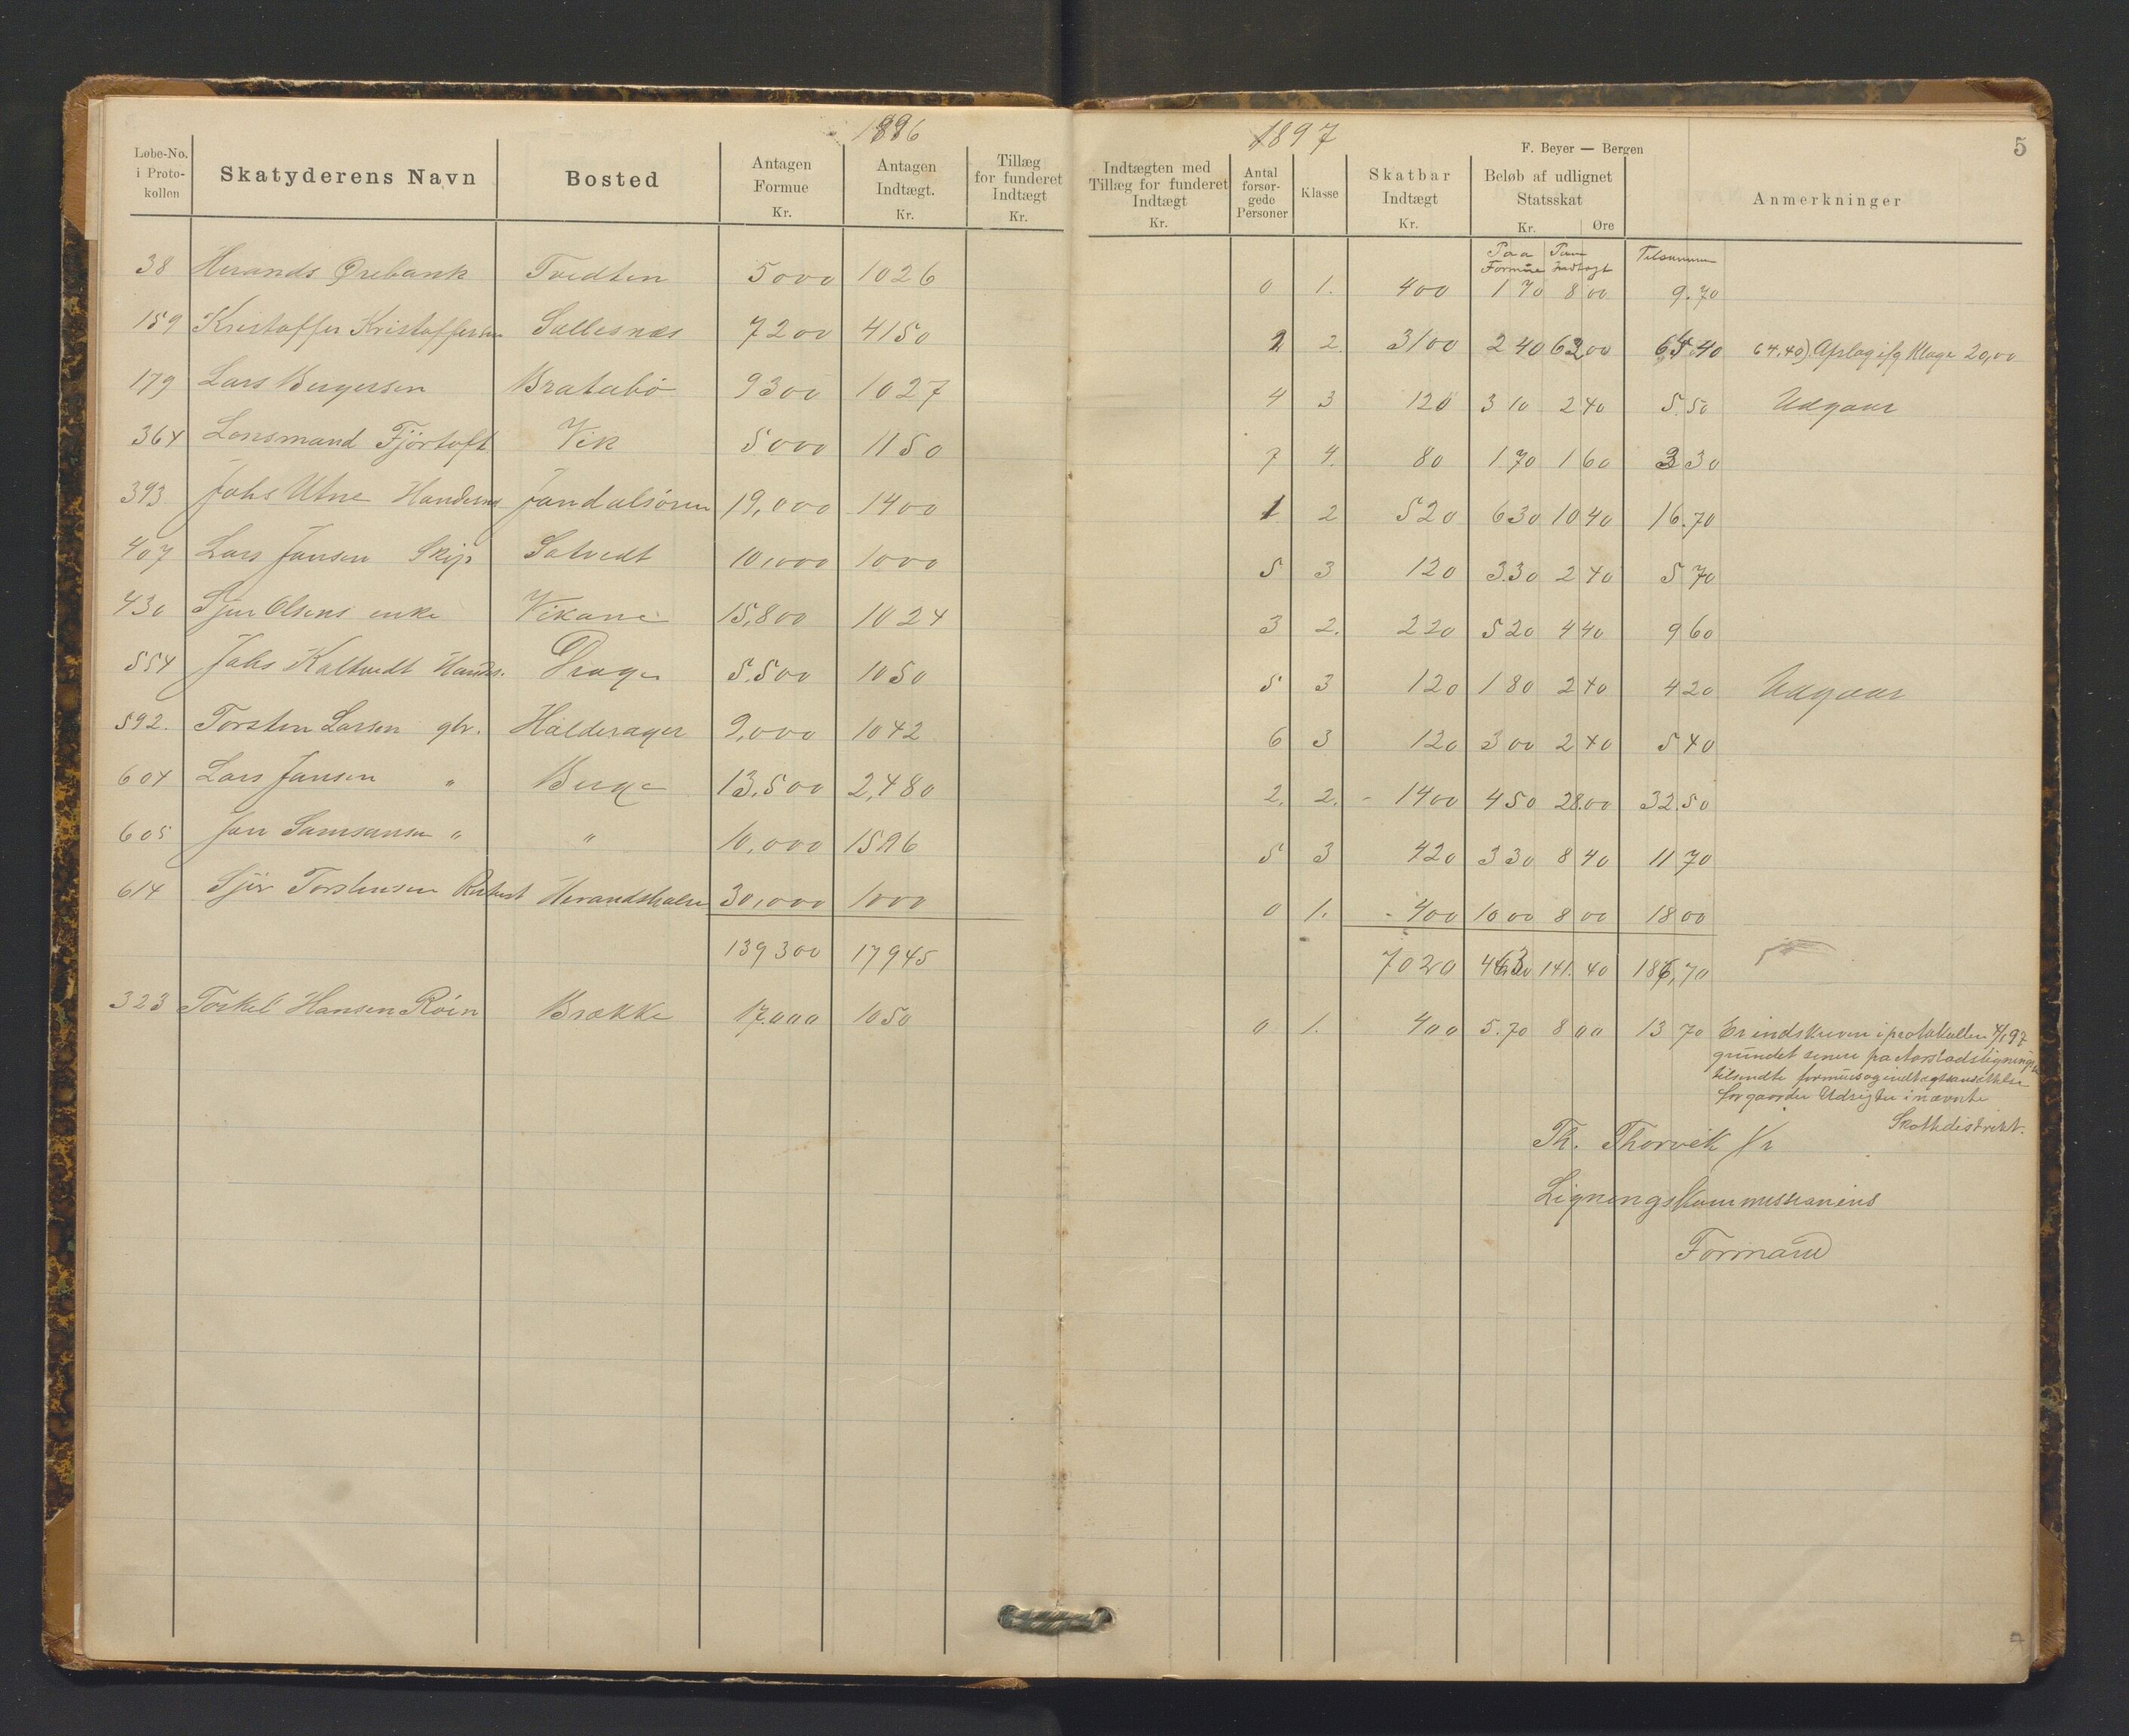 1896
Løbe-No. i Protokollen | Skatyderens Navn | Bosted | Antagen Formue Kr. | Antagen Indtægt. Kr. | Tillæg for funderet Indtægt Kr.
38 Herands Ørebank Tvedten 5000 1026
159 Kristoffer Kristoffersen Sallesnæs 7200 4150
179 Lars Bergersen Bratabö 9300 1027
364 Lensmand Fjörtoft Vik 5000 1150
393 Johs Utne Handesm Jondalsören 19,000 1400
407 Lars Jansen Skip Solvedt 10,000 1000
430 Sjur Olsens enke Vikane 15,800 1024
554 Johs Kaltvedt Hands. Drage 5.500 1050
592. Torsten Larsen gbr. Halderager 9,000 1042
604 Lars Jansen " Berge 13.500 2,480
605 Jon Samsonsen " " 10,000 1596
614 Sjur Torstensen Herandsholm 30,000 1000
139300 17945
323 Torkel Hansen Röin Brække 17.000 1050
1897
F. Beyer — Bergen
5
Indtægten med Tillæg for funderet Indtægt Kr. | Antal forsørgede Personer | Klasse | Skatbar Indtægt Kr. | Beløb af udlignet Statsskat Kr. Øre | Anmerkninger
Paa Formue Paa Indtægt Tilsammen
0 1. 400 1 70 8 00 9.70
2 2. 3100 2 40 62 00 64 40 64.40) Afslag ifg Klage 20,00
4 3 120 3 10 2 40 5.50 Udgaar
7 4. 80 1.70 1 60 3 30
1 2 520 6 30 10 40 16.70
5 3 120 3.30 2 40 5 70
3 2. 220 5 20 4 40 9 60
5 3 120 1 80 2 40 4 20 Udgaar
6 3 120 3 00 2 40 5 40
2. 2. - 1400 4 50 28.00 32.50
5 3 420 3 30 8 40 11 70
0 1. - 400 10 00 8 00 18 00
7020 141. 40 186,70
0 1. 400 5.70 8 00 13 70 Er indskreven i protokollen 4/1 97
grundet senere fra Aarstads ligningsk
tilsendte formues og indtægtsansættelse
for gaarden Udsigten i nævnte
Skattedistrikt.
Th. Thorvik Jr
Ligningskommissionens
Formand